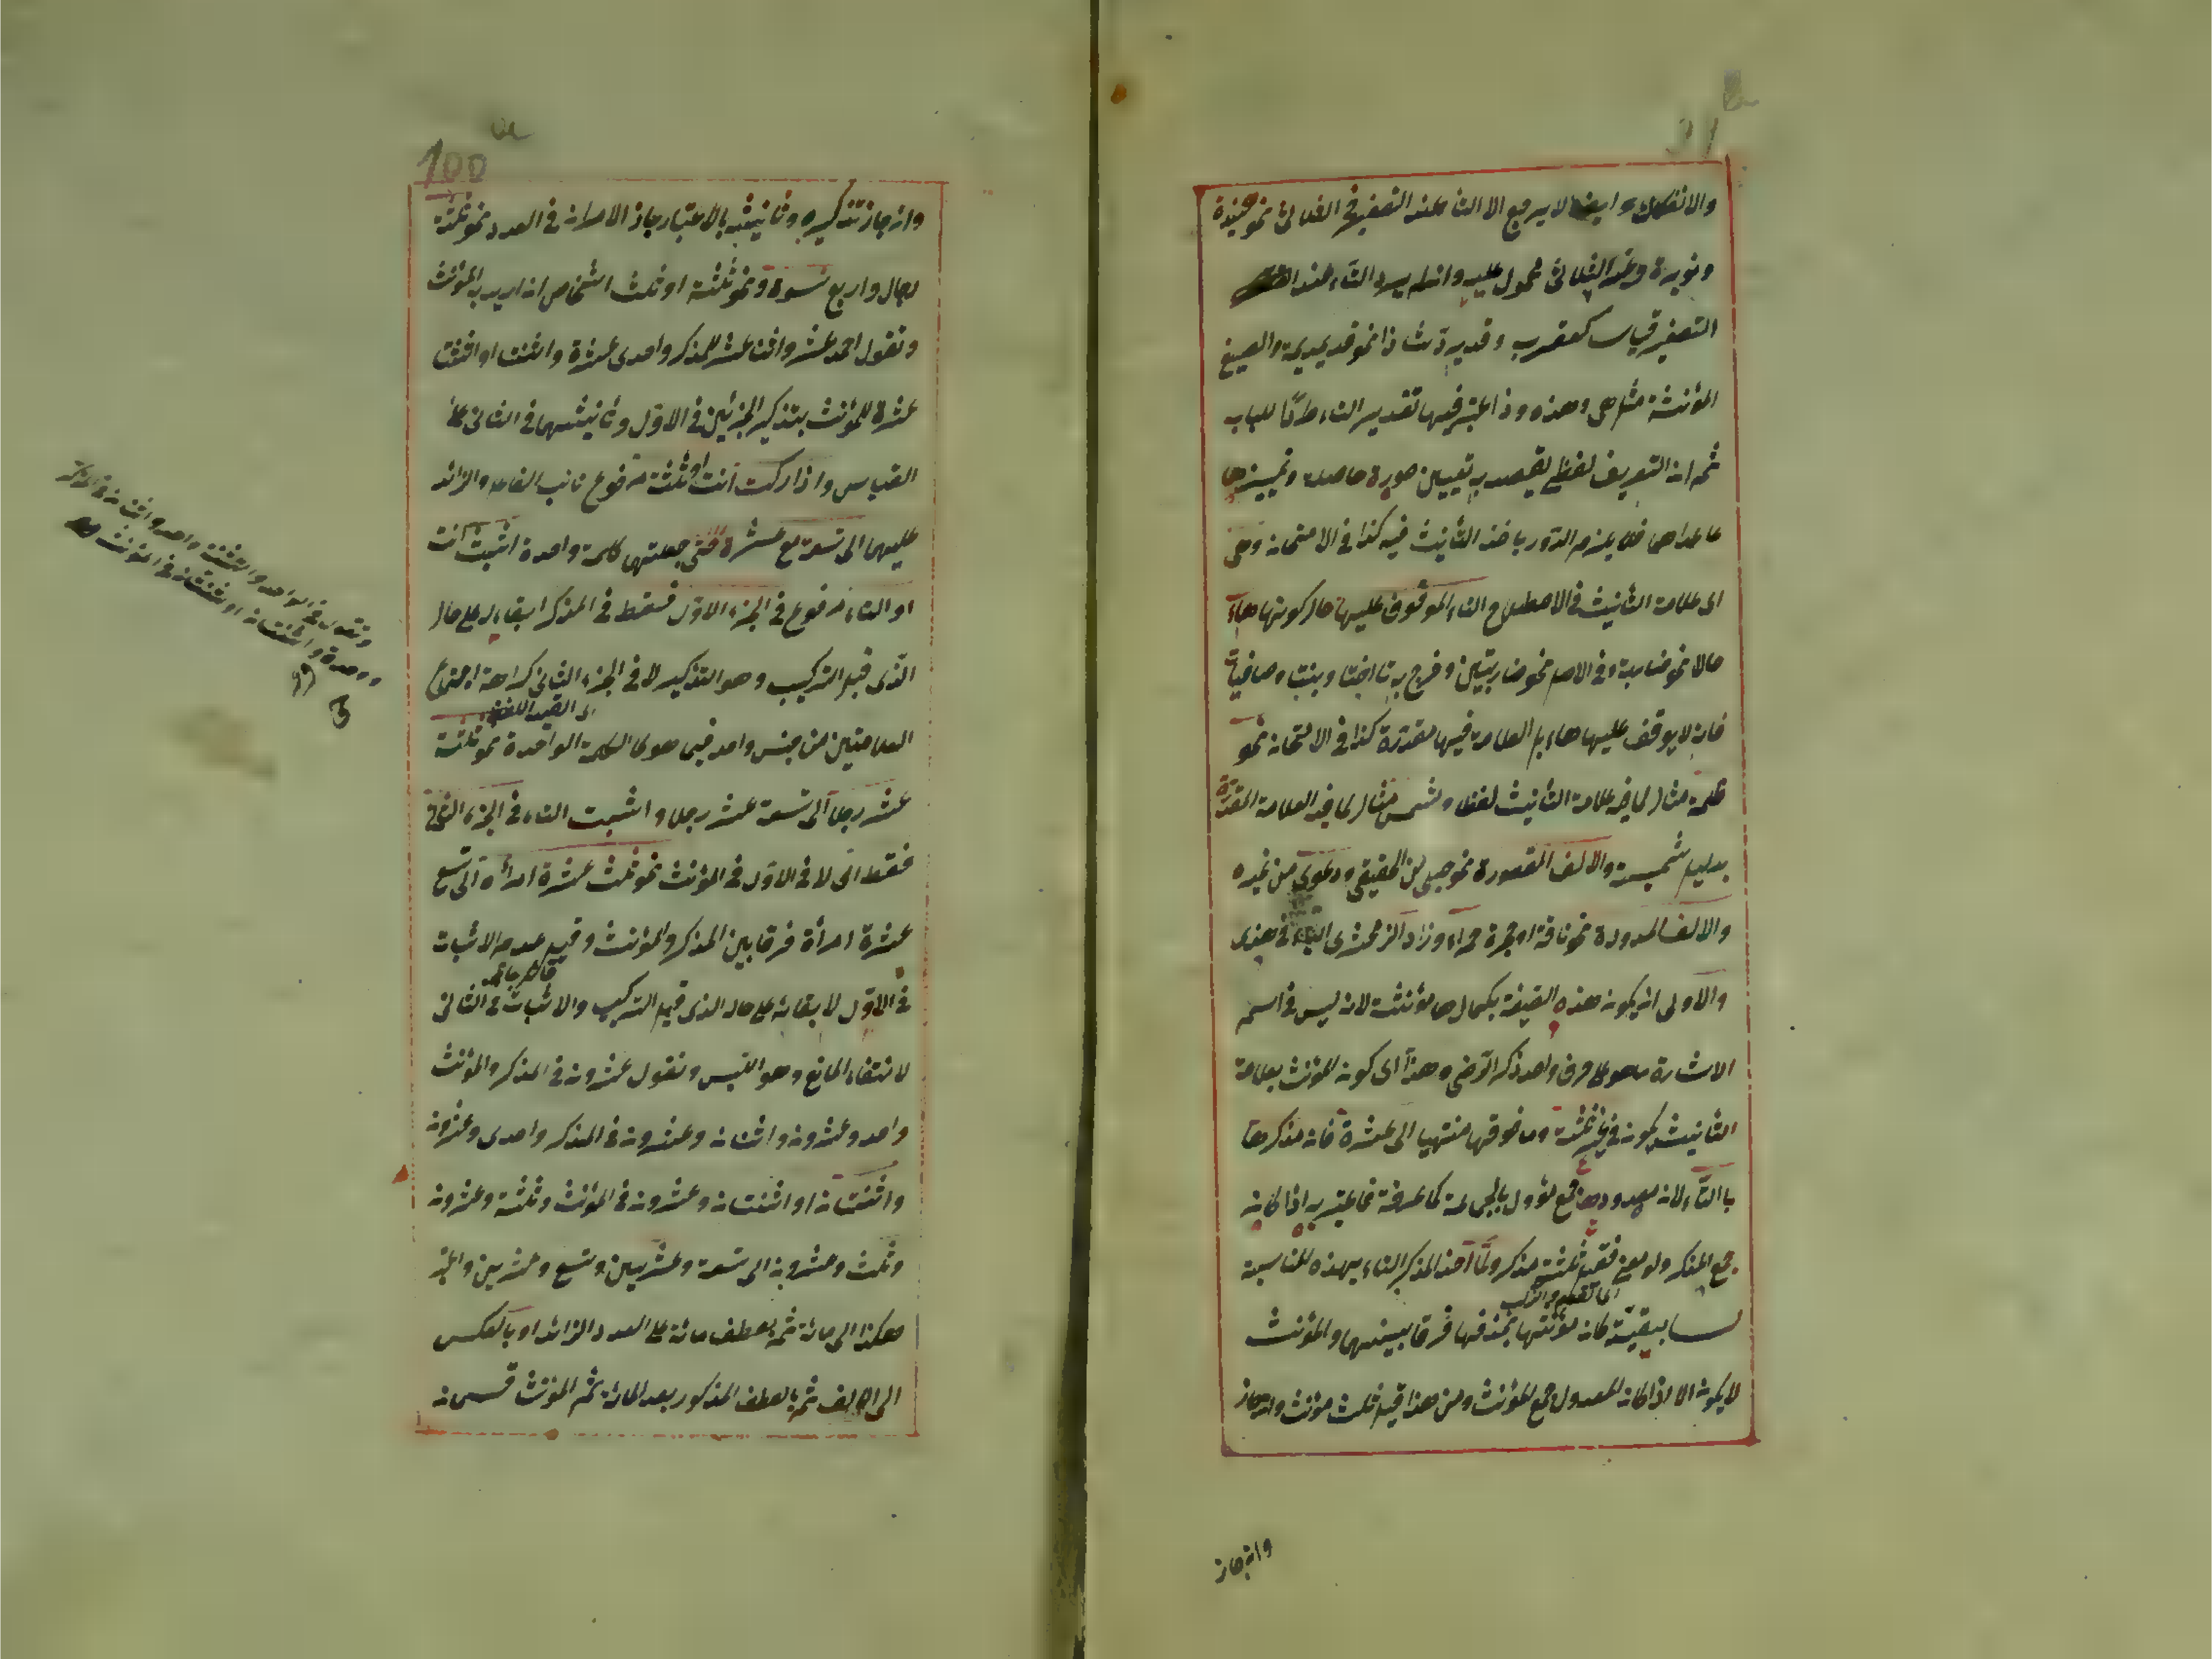 والانفكاك وايضا لا يرجع الا التاء عند التصغير في الثلاثي نحو هنيدة
ونويرة وغير الثلاثي محمول عليه وانما يرد التاء عند
التصغير قياسا كعقرب وقديرد شاذا نحو قديديمة والصيغ
المؤنثة مثل هي وهذه وذا اعتبر فيها تقدير التاء طردا للباب
ثم ان التعريف لفظي يقصد به تعيين صورة حاصلة وتمييزها
عما عداها فلا يلزم الدور باخذ التأنيث فيه كذا في الامتحان وهي
اى علامة التأنيث في الاصطلاح التاء الموقوف عليها حال كونها هاء
حالا نحو ضاربة وفي الاصل نحو ضاربتين وخرج به تا اخت وبنت وصافيات
فانه لا يوقف عليها هاء بل العلامة فيها مقدرة كذا في الامتحان نحو
ظلمة مثال لما فيه علامة التأنيث لفظا وشمس مثال لما فيه العلامة المقدرة
بدليل شميسة والالف المقصورة نحو حبلى من الحقيقي ودعوى من غيره
والالف الممدودة نحو ناقة او حمراء وزاد الزمخشرى الياء في هذى
والاولى ان يكون هذه الصيغة بكمالها مؤنثة لانه ليس في اسم
الاشارة ما هو على حرف واحد ذكره الرضي وهذا اى كون المؤنث بعلامة
التأنيث يكون في غير ثلثة وما فوقها منتهيا الى عشرة فان مذكرها
بالتاء لان معدودها جمع مؤول بالجماعة كما عرفت فاعتبر به اذا كان
جمع المذكر ولو معنى فقيل ثلثة مذكر ولما اخذ المذكر التاء بهذه المناسبة
اى العدد والتركيب
لسابقيته كان مؤنثها بحذفها فرقا بينهما والمؤنث
لا يكون الا اذا كان المعدول جمع المؤنث ومن هذا قيل ثلث مؤنث وان جاز
وان جاز
100
وان جاز تذكيره وتأنيثه بالاعتبار جاز الامران في العدد نحو ثلثة
رجال واربع نسوة ونحو ثلثة او ثلث اشخاص ان اريد به المؤنث
وتقول احد عشر واثنا عشر للمذكر واحدى عشرة واثنتا او اثنتا
عشرة للمؤنث بتذكير الجزئين في الاول وتأنيثهما في الثاني على
القياس واذا ركبت انت ثلثة مرفوع نائب الفاعل والزائد
عليهما الى تسعة مع عشرة حتى جعلتهما كلمة واحدة اثبت انت
او التاء مرفوع في الجزء الاول فقط في المذكر ابقاء له على حال
الذى قبل التركيب وهو التذكير لا في الجزء الثاني كراهة اجتماع
العلامتين من جنس واحد فيما هو كالكلمة الواحدة نحو ثلثة
عشر رجلا الى تسعة عشر رجلا واثبت التاء في الجزء الثاني
فقط اى لا في الاول في المؤنث نحو ثلث عشرة امرأة الى تسع
عشرة امرأة فرقا بين المذكر والمؤنث وقيل عدم الاثبات
في الاول لابقائه على حال الذى قبل التركيب والاثبات في الثاني
لانتفاء المانع وهو اللبس وتقول عشرون في المذكر والمؤنث
واحد وعشرون واثنان وعشرون في المذكر واحدى وعشرون
واثنتان او اثنتان وعشرون في المؤنث وثلثة وعشرون
وثلث وعشرون الى تسعة وعشرين وتسع وعشرين
هكذا الى مائة ثم بعطف مائة على العدد الزائد او بالعكس
الى الالف ثم بالعطف المذكور بعد المائة ثم المؤنث قسمان
وتقول في الواحد والتثنية واحد واثنان في المذكر
وواحدة واثنتان او ثنتان في المؤنث